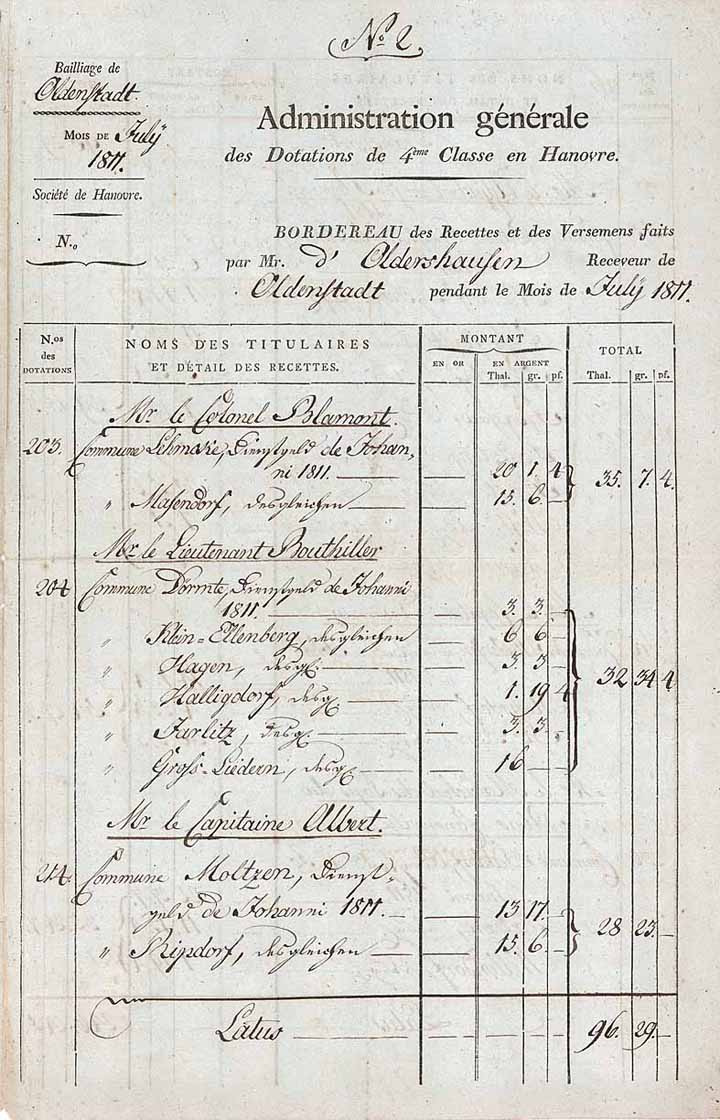 No. 2.
Bailliage de
Oldenstadt.
Mois de July
1811.
Société de Hanovre.
N.o
Administration générale
des Dotations de 4ème Classe en Hanovre.
BORDEREAU des Recettes et des Versemens faits
par Mr. d' Oldershausen Receveur de
Oldenstadt pendant le Mois de July 1811.
N.os des DOTATIONS
NOMS DES TITULAIRES
ET DÉTAIL DES RECETTES.
MONTANT
EN OR
EN ARGENT
Thal. gr. pf.
TOTAL
Thal. gr. pf.
Mr. le Colonel Blamont.
203. Commune Lehmke, Dienstgeld de Johan-
ni 1811. — — 20 1. 4
" Masendorf, desgleichen — — 15. 6. — 35. 7. 4.
Mr. le Lieutenant Bouthiller
204 Commune Dörmte, Dienstgeld de Johanni
1811. — — 3. 3. —
" Klein-Ellenberg, desgleichen — 6 6. —
" Hagen, desgl. — — 3. 3 —
" Halligdorf, desgl. — — 1. 19 4 32 34 4
" Jarlitz, desgl. — — 3. 3. —
" Gross-Liedern, desgl. — — 16 — —
Mr. le Capitaine Albert.
214. Commune Moltzen, Dienst-
geld de Johanni 1811. — — 13 17. —
" Ripdorf, desgleichen — — 15. 6. — 28 23. —
Latus — — — 96. 29. —